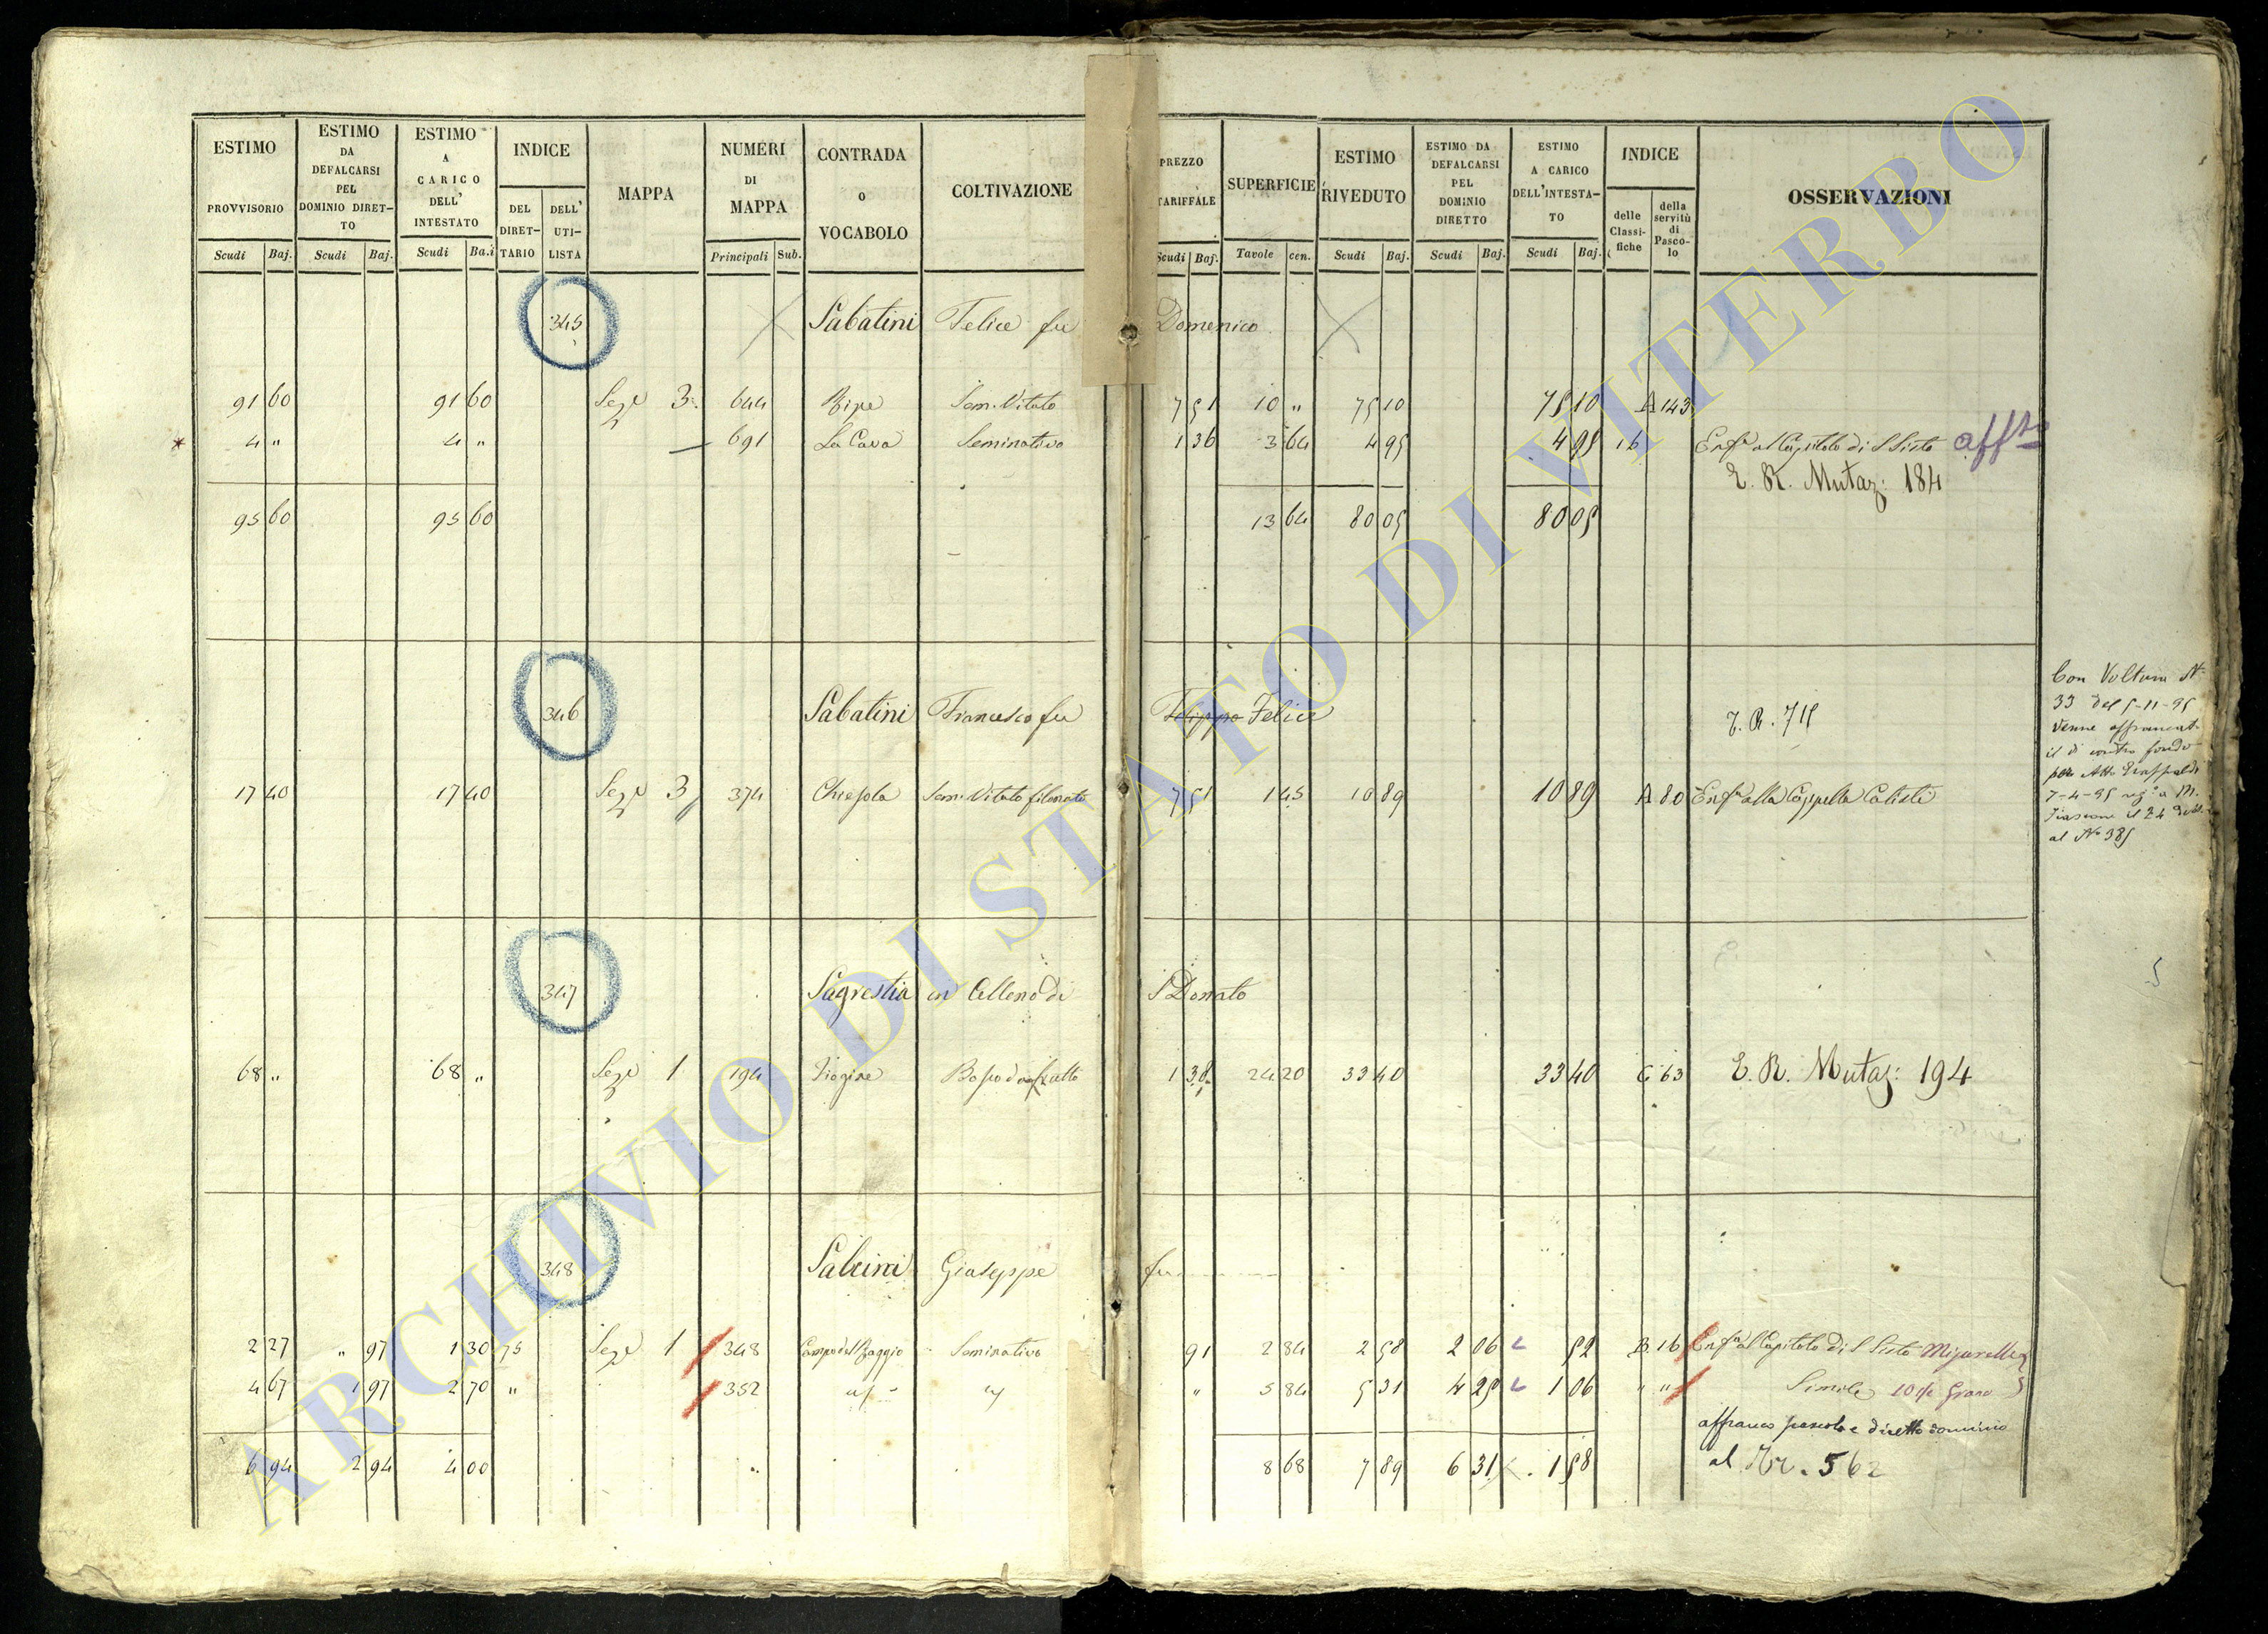 ESTIMO PROVVISORIO Scudi Baj.
ESTIMO DA DEFALCARSI PEL DOMINIO DIRET-TO Scudi Baj.
ESTIMO A CARICO DELL' INTESTATO Scudi Ba.i
INDICE DEL DIRET-TARIO DELL' UTI-LISTA
MAPPA
NUMERI DI MAPPA Principali Sub.
CONTRADA O VOCABOLO
COLTIVAZIONE
PREZZO TARIFFALE Scudi Baj.
SUPERFICIE Tavole cen.
ESTIMO RIVEDUTO Scudi Baj.
ESTIMO DA DEFALCARSI PEL DOMINIO DIRETTO Scudi Baj.
ESTIMO A CARICO DELL'INTESTA-TO Scudi Baj.
INDICE delle Classi-fiche della servitù di Pasco-lo
OSSERVAZIONI
345 Sabatini Felice fu Domenico
91 60 91 60 Sez.e 3. 644 Ripe Sem. Vitato 7 51 10 " 75 10 75 10 A 143
* 4 " 4 " 691 La Cava Seminativo 1 36 3 64 4 95 4 95 16 Enf.a al Capitolo di S Sisto aff.to
E. R. Mutaz: 184
95 60 95 60 13 64 80 05 80 05
346 Sabatini Francesco fu Filippo Felice T. R. 715
17 40 17 40 Sez.e 3 374 Chiesola Sem. Vitato filonato 7 51 1 45 10 89 10 89 A 80 Enf.a alla Cappella Calisti
Con Voltura N.
33 del 5-11-95
venne affrancat.
il di contro fondo
per Atto
7-4-95 reg.o a M.
Fiascone il 24
al N.o 385
347 Sagrestia in Celleno di S Donato
68 " 68 " Sez.e 1 194 Bosco da frutto 1 38 24 20 33 40 33 40 C 63 E. R. Mutaz: 194
348 Salcini Giuseppe fu
2 27 " 97 1 30 75 Sez.e 1 348 Campo del Faggio Seminativo 91 2 84 2 58 2 06 52 B 16 Enf.a al Capitolo di S Sisto
4 67 1 97 2 70 " 352 " 5 84 5 31 4 25 1 06 " " Simile Grano
affranco pascolo e diretto dominio
6 94 2 94 4 00 8 68 7 89 6 31 1 58 al 562
ARCHIVIO DI STATO DI VITERBO